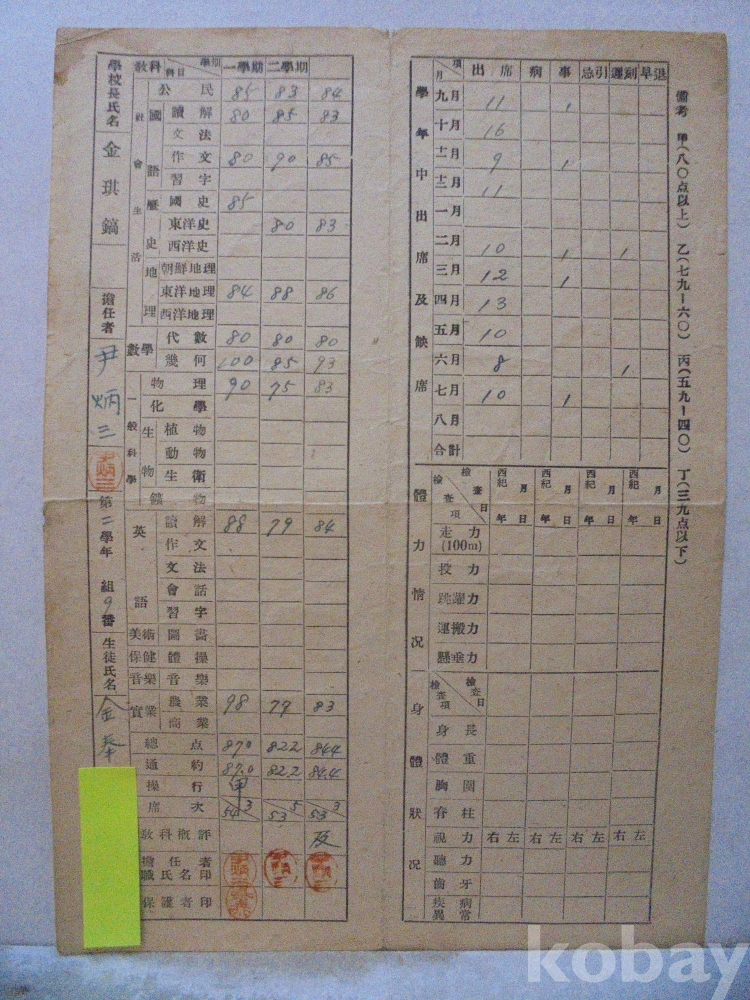 學校長氏名 金琪鎬
擔任者 尹炳三
第二學年 組 9番
生徒氏名 金奉
敎科 科目 學期 一學期 二學期
社會生活
國語
歷史
地理
公民 85 83 84
讀解 80 85 83
文法
作文 80 90 85
習字
國史 85
東洋史 80 83
西洋史
朝鮮地理
東洋地理 84 88 86
西洋地理
數學
代數 80 80 80
幾何 100 85 93
一般科學
物理 90 75 83
化學
生物
植物
動物
生衛
鑛物
英語
讀解 88 79 84
作文
文法
會話
習字
美術 圖畵
保健 體操
音樂 音樂
實業
農業 98 79 83
商業
總点 870 822 844
通約 87.0 82.2 84.4
操行 甲
席次 3/54 5/53 3/53
敎科槪評
擔任者職氏名印
保護者印
學年中出席及缺席
月 項 出席 病 事 忌引 遲刻 早退
九月 11 1
十月 16
十一月 9 1
十二月 11
一月
二月 10 1 1
三月 12 1
四月 13
五月 10
六月 8 1
七月 10 1
八月
合計
體力情况
檢查項 檢查日 西紀 年 月 日 西紀 年 月 日 西紀 年 月 日 西紀 年 月 日
走力(100m)
投力
跳躍力
運搬力
懸垂力
身體狀况
檢查項 檢查日
身長
體重
胸圍
脊柱
視力 右 左 右 左 右 左 右 左
聽力
齒牙
疾病異常
備考 甲(八〇点以上) 乙(七九ー六〇) 丙(五九ー四〇) 丁(三九点以下)
kobay